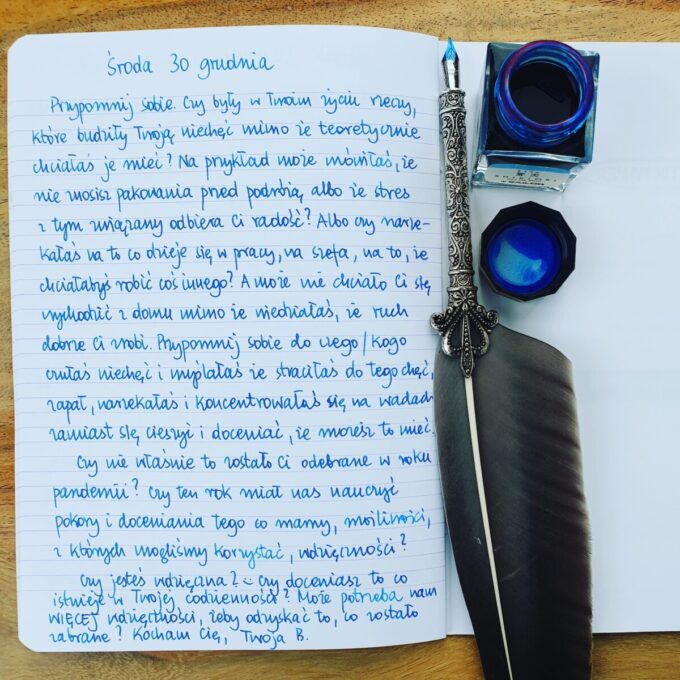 Środa 30 grudnia
Przypomnij sobie. Czy były w Twoim życiu rzeczy,
które budziły Twoją niechęć mimo że teoretycznie
chciałaś je mieć? Na przykład może mówiłaś, że
nie znosisz pakowania przed podróżą albo że stres
z tym związany odbiera Ci radość? Albo czy narze-
kałaś na to co dzieje się w pracy, na szefa, na to, że
chciałabyś robić coś innego? A może nie chciało Ci się
wychodzić z domu mimo że wiedziałaś, że ruch
dobrze Ci zrobi. Przypomnij sobie do czego/kogo
czułaś niechęć i myślałaś że straciłaś do tego chęć,
zapał, narzekałaś i koncentrowałaś się na wadach
zamiast się cieszyć i doceniać, że możesz to mieć.
Czy nie właśnie to zostało Ci odebrane w roku
pandemii? Czy ten rok miał nas nauczyć
pokory i doceniania tego co mamy, możliwości,
z których mogliśmy korzystać, wdzięczności?
Czy jesteś wdzięczna? Czy doceniasz to co
istnieje w Twojej codzienności? Może potrzeba nam
WIĘCEJ wdzięczności, żeby odzyskać to, co zostało
zabrane? Kocham Cię, Twoja B.